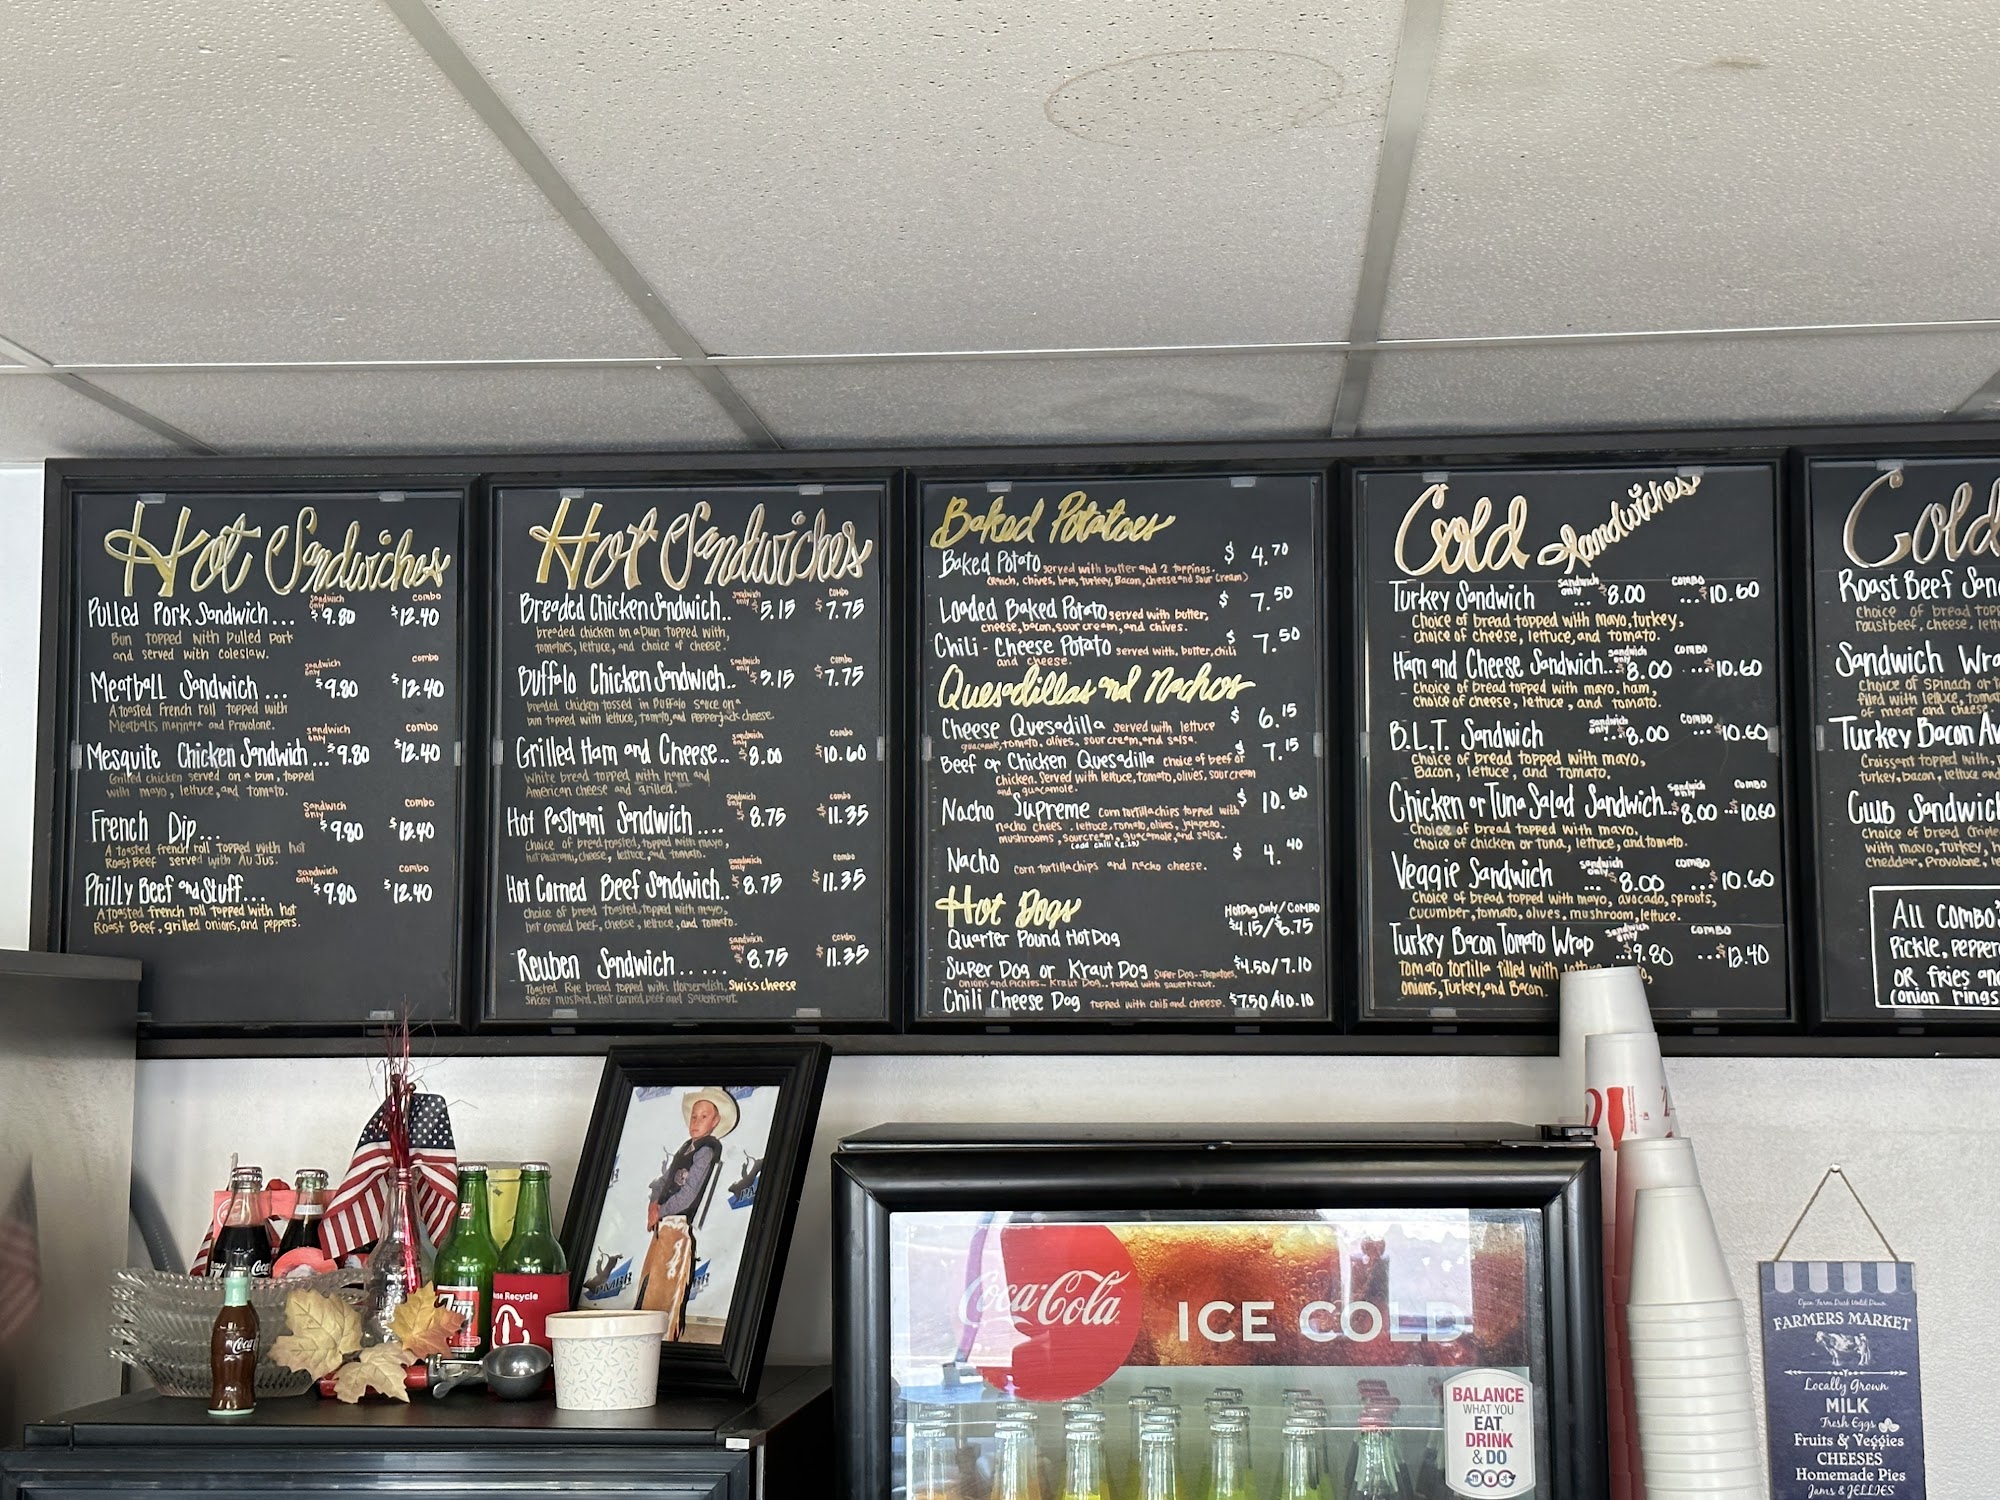 Hot Sandwiches
Pulled Pork Sandwich... sandwich only $9.80 combo $12.40
Bun topped with pulled pork
and served with coleslaw.
Meatball Sandwich ... sandwich only $9.80 combo $12.40
A toasted french roll topped with
Meatballs marinara and Provolone.
Mesquite Chicken Sandwich... sandwich only $9.80 combo $12.40
Grilled chicken served on a bun, topped
with mayo, lettuce, and tomato.
French Dip... sandwich only $9.80 combo $12.40
A toasted french roll topped with hot
Roast Beef served with Au Jus.
Philly Beef and Stuff... sandwich only $9.80 combo $12.40
A toasted french roll topped with hot
Roast Beef, grilled onions, and peppers.
Hot Sandwiches
Breaded Chicken Sandwich.. sandwich only $5.15 combo $7.75
breaded chicken on a bun topped with,
tomatoes, lettuce, and choice of cheese.
Buffalo Chicken Sandwich.. sandwich only $5.15 combo $7.75
breaded chicken tossed in Buffalo sauce on a
bun topped with lettuce, tomato, and pepperjack cheese
Grilled Ham and Cheese.. sandwich only $8.00 combo $10.60
White bread topped with ham and
American cheese and grilled.
Hot Pastrami Sandwich .... sandwich only $8.75 combo $11.35
choice of bread toasted, topped with mayo,
hot pastrami, cheese, lettuce, and tomato.
Hot Corned Beef Sandwich.. sandwich only $8.75 combo $11.35
choice of bread toasted, topped with mayo,
hot corned beef, cheese, lettuce, and tomato.
Reuben Sandwich..... sandwich only $8.75 combo $11.35
Toasted Rye bread topped with Horseradish, Swiss cheese
Spicy mustard, Hot corned beef and Sauerkraut.
Baked Potatoes
Baked Potato served with butter and 2 toppings. $ 4.70
(Ranch, chives, ham, turkey, Bacon, cheese and sour cream)
Loaded Baked Potato served with butter, $ 7.50
cheese, bacon, sour cream, and chives.
Chili-Cheese Potato served with, butter, chili $ 7.50
and cheese.
Quesadillas and Nachos
Cheese Quesadilla served with lettuce $ 6.15
guacamole, tomato, olives, sour cream, and salsa.
Beef or Chicken Quesadilla choice of beef or $ 7.15
chicken. Served with lettuce, tomato, olives, sour cream
and guacamole.
Nacho Supreme corn tortilla chips topped with $ 10.60
nacho chees, lettuce, tomato, olives, jalapeno,
mushrooms, sour cream, guacamole and salsa..
Nacho corn tortilla chips and nacho cheese. $ 4.40
Hot Dogs HotDog Only / COMBO
Quarter Pound Hot Dog $4.15/$6.75
Super Dog or Kraut Dog Super Dog.. Tomatoes, $4.50/7.10
onions and pickles.. Kraut Dog.. topped with sauerkraut.
Chili Cheese Dog topped with chili and cheese. $7.50/10.10
Cold Sandwiches
Turkey Sandwich sandwich only ... $8.00 combo ...$10.60
choice of bread topped with mayo, turkey,
choice of cheese, lettuce, and tomato.
Ham and Cheese Sandwich... sandwich only $8.00 combo ...$10.60
choice of bread topped with mayo, ham,
choice of cheese, lettuce, and tomato.
B.L.T. Sandwich sandwich only ...$8.00 combo ...$10.60
Choice of bread topped with mayo,
Bacon, lettuce, and tomato.
Chicken or Tuna Salad Sandwich... sandwich only $8.00 combo ...$10.60
Choice of bread topped with mayo,
choice of chicken or tuna, lettuce, and tomato.
Veggie Sandwich sandwich only ... $8.00 combo ...$10.60
Choice of bread topped with mayo, avocado, sprouts,
cucumber, tomato, olives, mushroom, lettuce.
Turkey Bacon Tomato Wrap sandwich only ..$9.80 combo ...$12.40
Tomato tortilla filled with
onions, Turkey, and Bacon.
Cold
Roast Beef
choice of bread
roast beef, cheese,
Sandwich
Choice of Spinach or
filled with lettuce,
of meat and cheese.
Turkey Bacon
Croissant topped with,
turkey, bacon, lettuce and
Club
choice of bread
with mayo, turkey,
cheddar, Provolone,
All combo's
Pickle,
or fries
(onion rings
Please Recycle
7up
Coca-Cola
PMRR
Coca-Cola
ICE COLD
BALANCE
WHAT YOU
EAT,
DRINK
& DO
Open From Dusk Until Dawn
FARMERS MARKET
Locally Grown
MILK
Fresh Eggs
Fruits & Veggies
CHEESES
Homemade Pies
Jams & JELLIES